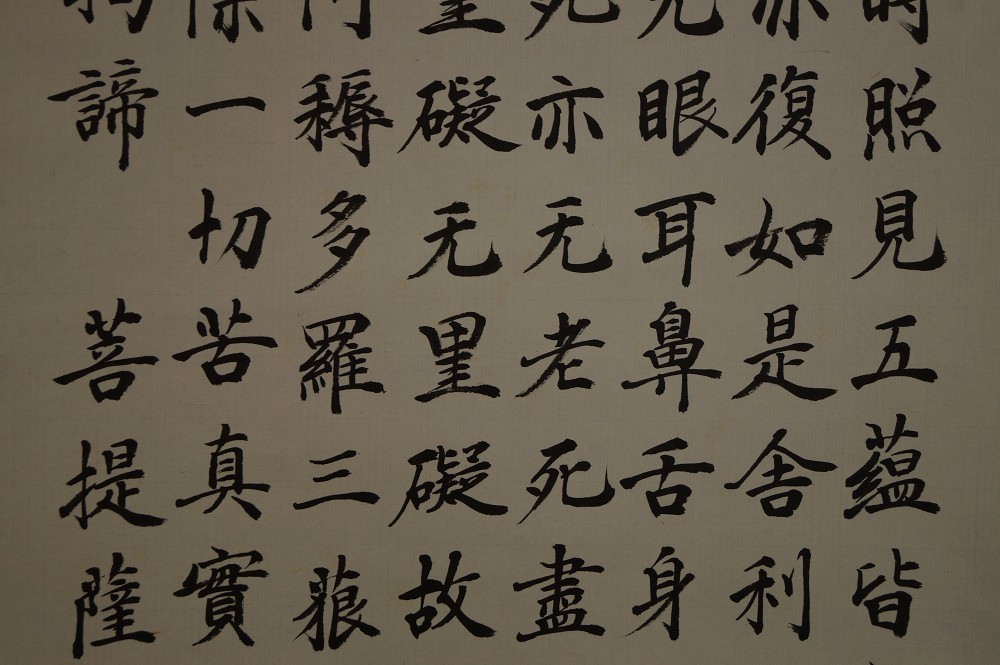 時照見五蘊皆
亦復如是舍利
无眼耳鼻舌身
死亦无老死盡
罣礙无罣礙故
阿耨多羅三藐
除一切苦真實
諦 菩提薩